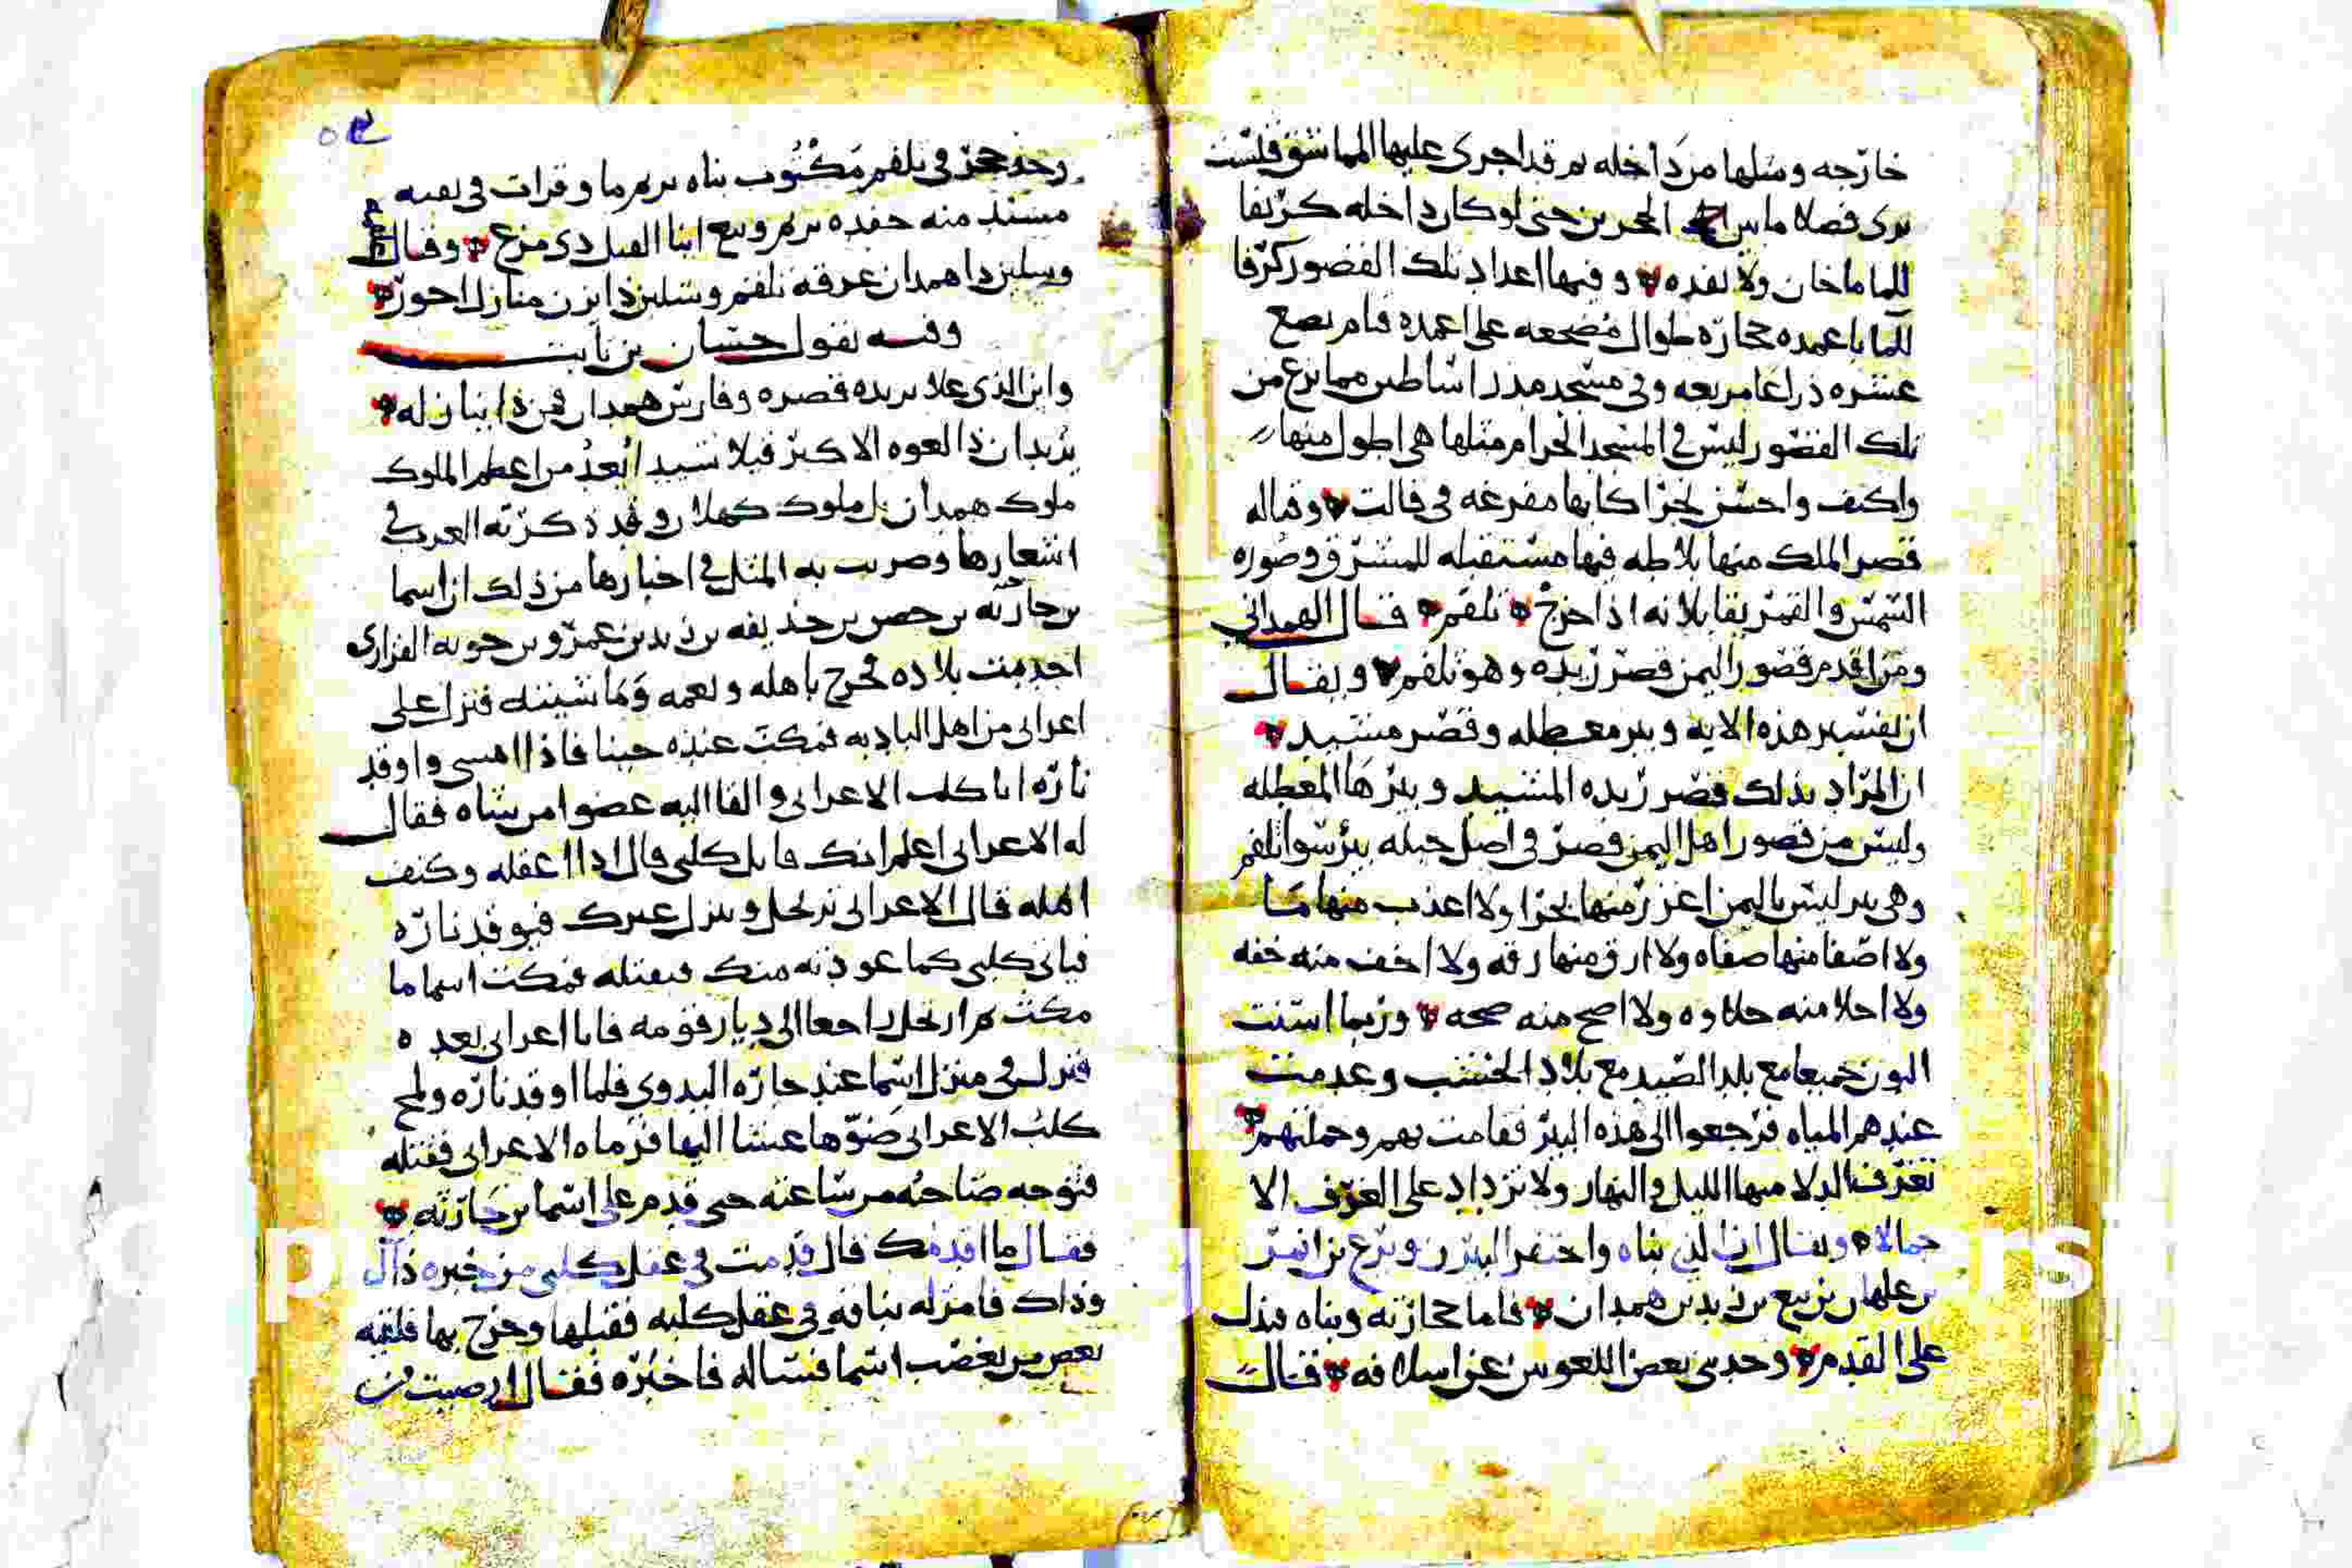 خارجه ومثلها من داخله ثم قد اجرى عليها الما شق فليست
يرى فصلا ما بين الحجرين حتى لو كان داخله كريفا
للما ما خان ولا نفده وفيها اعداد تلك القصور كرفا
للما باعمده حجاره طوال مضجعه على اعمده قيام بضع
عشره ذراعا مربعه وفي مسجد مدر اساطين مما نزع من
تلك القصور ليس في المسجد الحرام مثلها هي اطول منها
واكثف واحسن نجرا كانها مفرغه في قالب وقباله
قصر الملك منها بلاطه فيها مستقبله للمشرق وصوره
الشمس والقمر يقابلانه اذا خرج تلقم قال الهمداني
ومن اقدم قصور اليمن قصر ريده وهو تلقم ويقال
ان تفسير هذه الايه وبئر معطله وقصر مشيد
ان المراد بذلك قصر ريده المشيد وبئرها المعطله
وليس من قصور اهل اليمن قصر في اصل جبله بئر سوا تلقم
وهي بئر ليس باليمن اغزر منها بحرا ولا اعذب منها ما
ولا اصفا منها صفاه ولا ارق منها رقه ولا اخف منه خفه
ولا احلا منه حلاوه ولا اصح منه صحه وربما اسنت
البون جميعا مع بلد الصيد مع بلاد الخشب وعدمت
عندهم المياه فرجعوا الى هذه البئر فقامت بهم وحملتهم
تغترف الدلا منها الليل والنهار ولا تزداد على الغرف الا
جمالا ويقال ان الذي بناه واحتفر البئر
بن علهان بن بتع بن زيد بن همدان فاما حجارته وبناه فيدل
على القدم وحدثني بعض اللعويين عن اسلافه قال
وجد حجر في تلقم مكتوب بناه يريم ما وقرات في بقيه
مسند منه حفده يريم وبتع ابنا القيل ذي مرع وقال
وسلين ذا همدان غرفه تلقم وسلين ذا يزن منازل احور
وفيه يقول حسان بن ثابت
واين الذي علا بريده قصره وفارس همدان فمن ذا ينازله
يريد ان ذا العوه الاكبر فبلا شيد ايعد من اعظم الملوك
ملوك همدان بل ملوك كهلان وقد ذكرته العرب في
اشعارها وضربت به المثل في اخبارها من ذلك ان اسما
بن حارثه بن حصن بن حذيفه بن بدر بن عمرو بن جويه الفزاري
اجدبت بلاده فخرج باهله ونعمه وماشيته فنزل على
اعرابي من اهل الباديه فمكث عنده حينا فاذا امسى واوقد
ناره اتا كلب الاعرابي والقا اليه عضوا من شاه فقال
له الاعرابي اعلم انك قاتل كلبي قال اذا اعقله وكنف
اهله قال الاعرابي ترتحل وينزل غيرك فيوقد ناره
فياتي كلبي كما عودته منك فيقتله فمكث اسما ما
مكث ثم ارتحل راجعا الى ديار قومه فاتا اعرابي بعده
فنزل في منزل اسما عند جاره البدوي فلما اوقد ناره ولمح
كلب الاعرابي ضوها عشا اليها فرماه الاعرابي فقتله
فتوجه صاحبه من ساعته حتى قدم على اسما بن حارثه
فقال ما اقدمك قال قدمت في عقل كلبي من خبره ذال
وذاك فامر له بناقه في عقل كلبه فقبلها وخرج بها فلقيه
بعض من يغضب اسما فساله فاخبره فقال ارضيت من